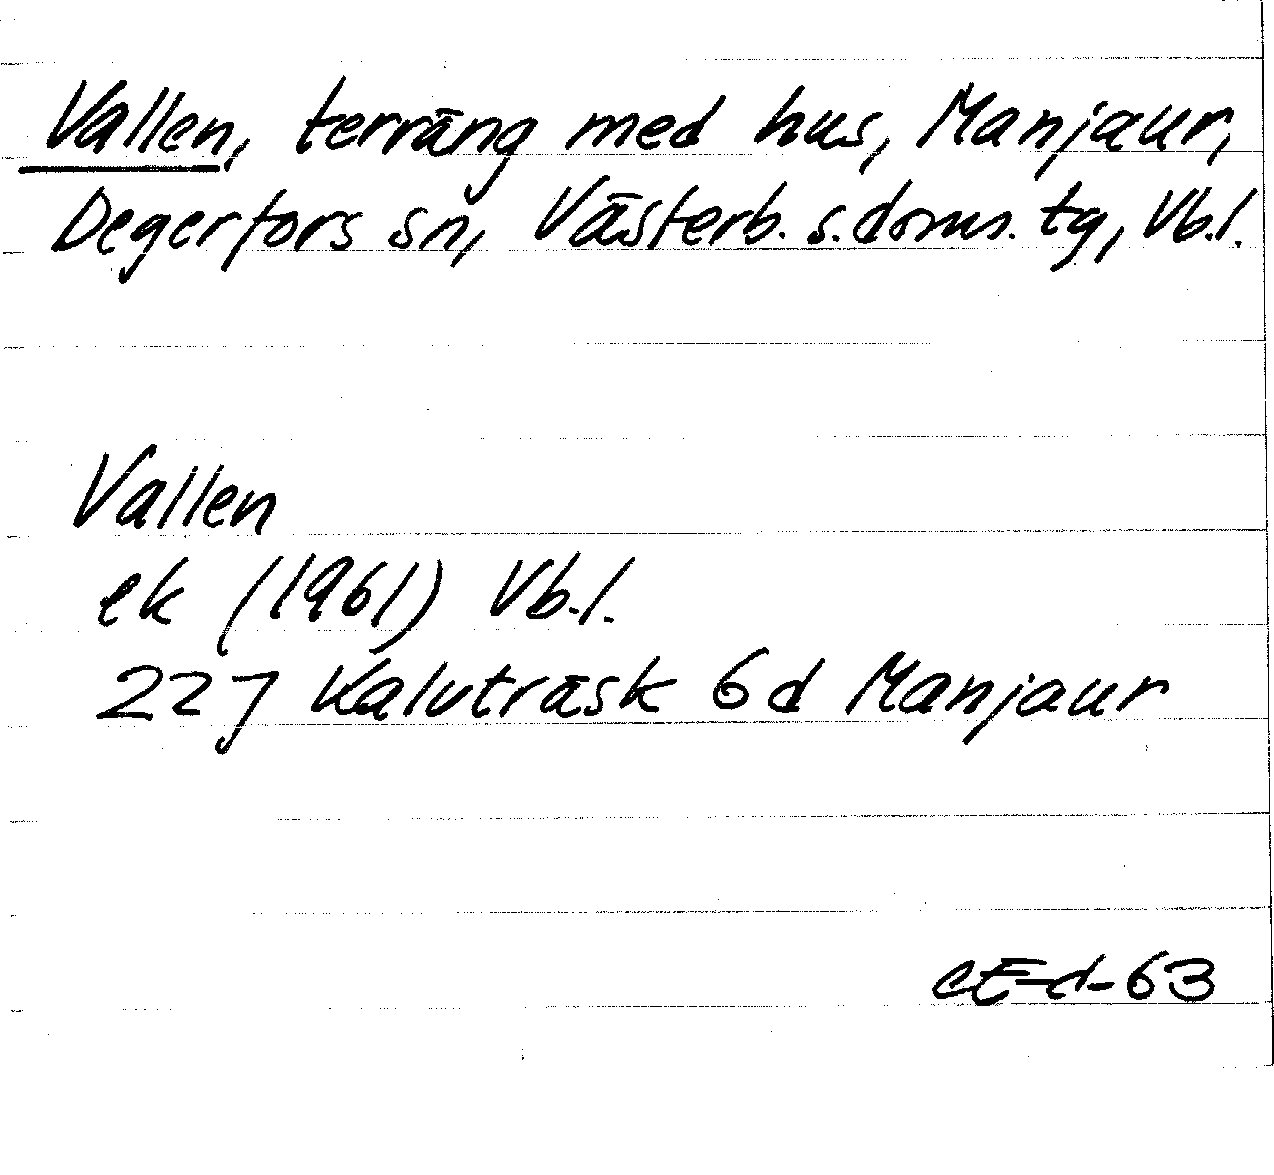 Vallen, terräng med hus, Manjaur,
Degerfors sn, Västerb. s. doms. tg, Vb.l.
Vallen
ek (1961) Vb.l.
22J Kalvträsk 6d Manjaur
63